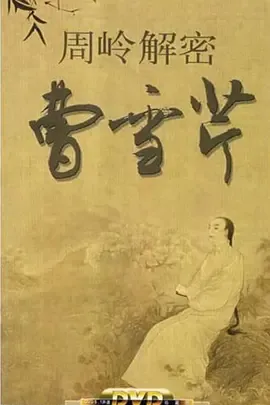 周岭解密
曹雪芹
DVD